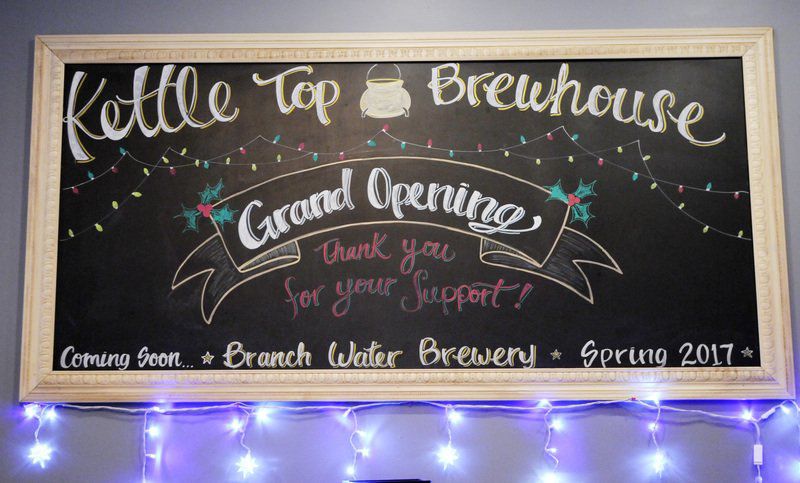 Kettle Top Brewhouse
Grand Opening
Thank you
for your Support!
Coming Soon... ☆ Branch Water Brewery ☆ Spring 2017 ☆